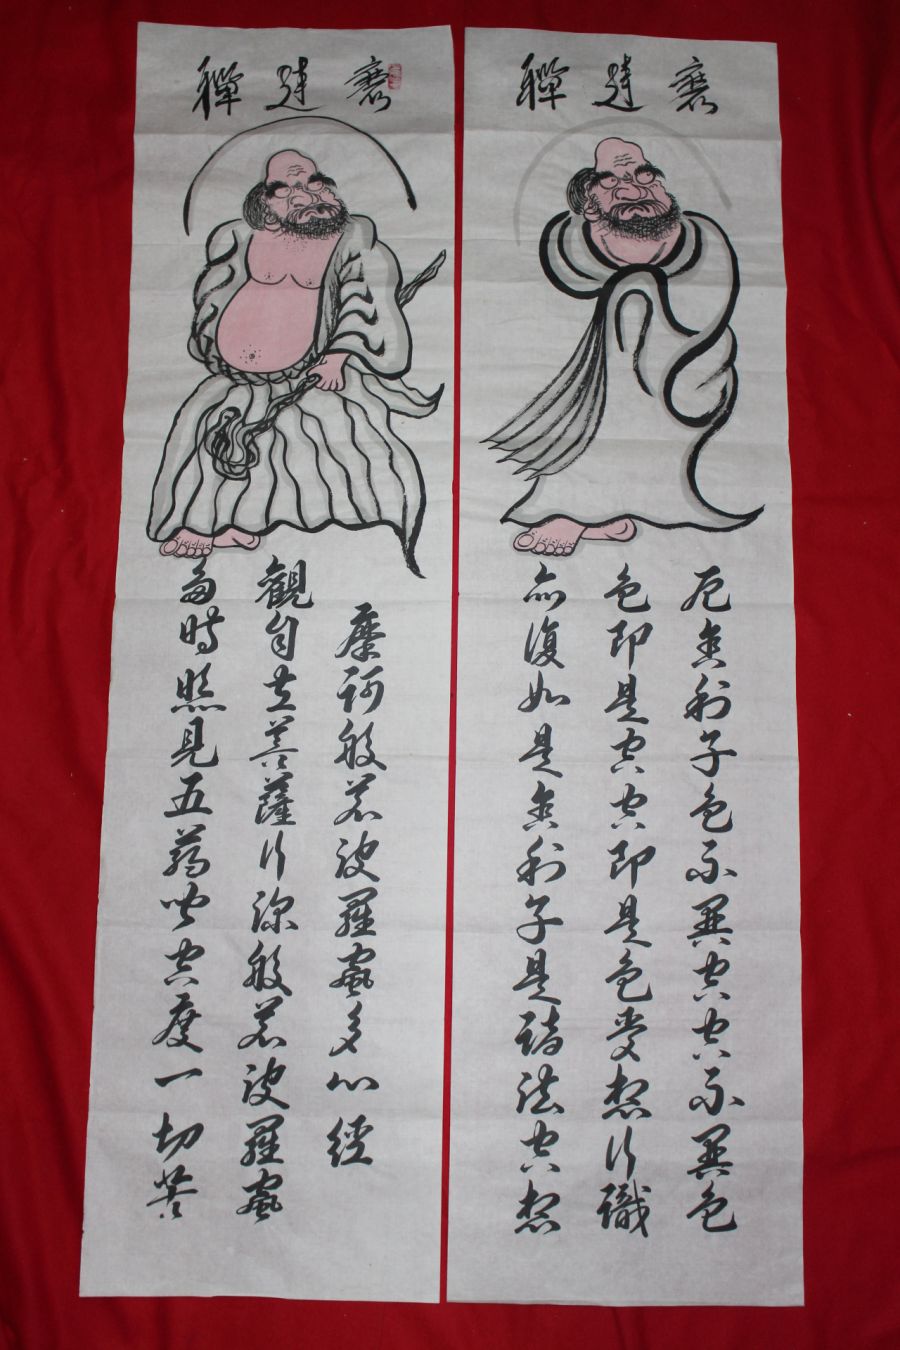 磨達禪
摩訶般若波羅蜜多心經
觀自在菩薩行深般若波羅蜜
多時照見五蘊皆空度一切苦
磨達禪
厄舍利子色不異空空不異色
色即是空空即是色受想行識
亦復如是舍利子是諸法空想